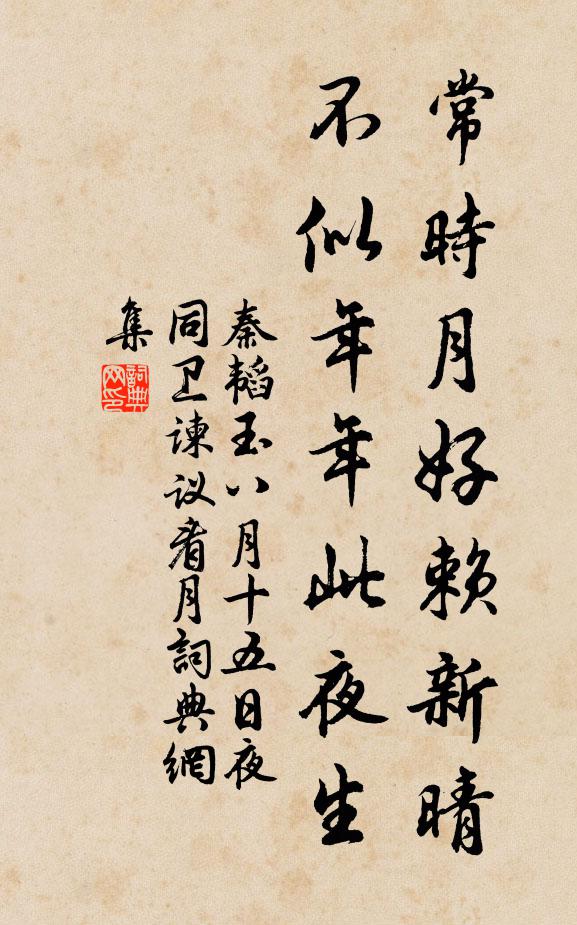 常時月好赖新晴
不似年年此夜生
秦韬玉八月十五日夜
同卫谏议看月詞典網
集
詞典网印